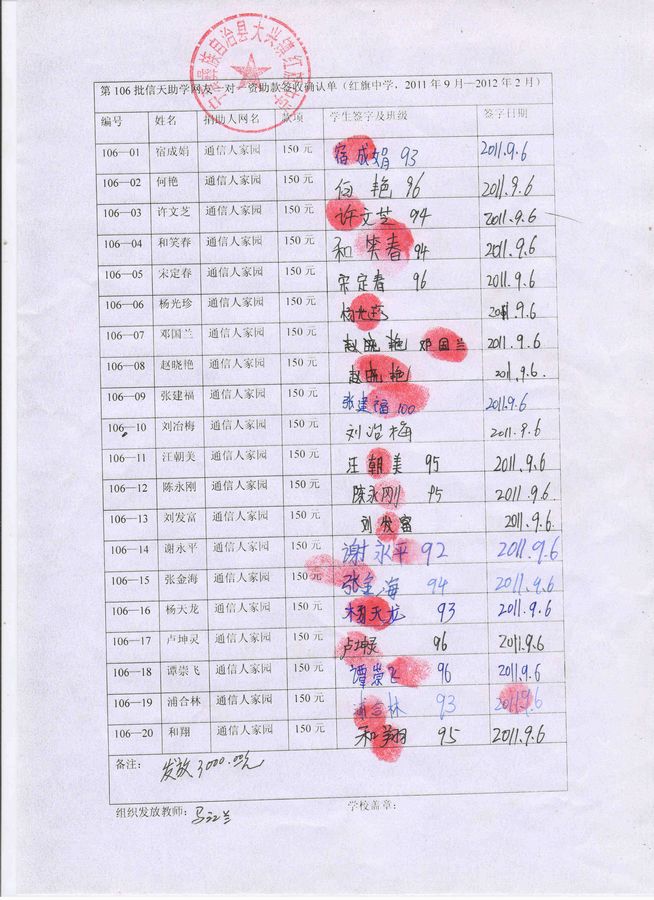 自治县大兴镇红旗中学
第 106 批信天助学网友一对一资助款签收确认单（红旗中学，2011 年 9 月—2012 年 2 月）
编号 姓名 捐助人网名 款项 学生签字及班级 签字日期
106—01 宿成娟 通信人家园 150 元 宿成娟 93 2011.9.6
106—02 何艳 通信人家园 150 元 何艳 96 2011.9.6
106—03 许文芝 通信人家园 150 元 许文芝 94 2011.9.6
106—04 和笑春 通信人家园 150 元 和笑春 94 2011.9.6
106—05 宋定春 通信人家园 150 元 宋定春 96 2011.9.6
106—06 杨光珍 通信人家园 150 元 杨光珍 2011.9.6
106—07 邓国兰 通信人家园 150 元 赵晓艳 邓国兰 2011.9.6
106—08 赵晓艳 通信人家园 150 元 赵晓艳 2011.9.6.
106—09 张建福 通信人家园 150 元 张建福 100 2011.9.6
106—10 刘冶梅 通信人家园 150 元 刘冶梅 2011.9.6.
106—11 汪朝美 通信人家园 150 元 汪朝美 95 2011.9.6
106—12 陈永刚 通信人家园 150 元 陈永刚 95 2011.9.6.
106—13 刘发富 通信人家园 150 元 刘发富 2011.9.6.
106—14 谢永平 通信人家园 150 元 谢永平 92 2011.9.6
106—15 张金海 通信人家园 150 元 张金海 94 2011.9.6
106—16 杨天龙 通信人家园 150 元 杨天龙 93 2011.9.6
106—17 卢坤灵 通信人家园 150 元 卢坤灵 96 2011.9.6
106—18 谭崇飞 通信人家园 150 元 谭崇飞 96 2011.9.6
106—19 浦合林 通信人家园 150 元 浦合林 93 2011.9.6
106—20 和翔 通信人家园 150 元 和翔 95 2011.9.6
备注： 发放3000.00元
组织发放教师： 学校盖章：